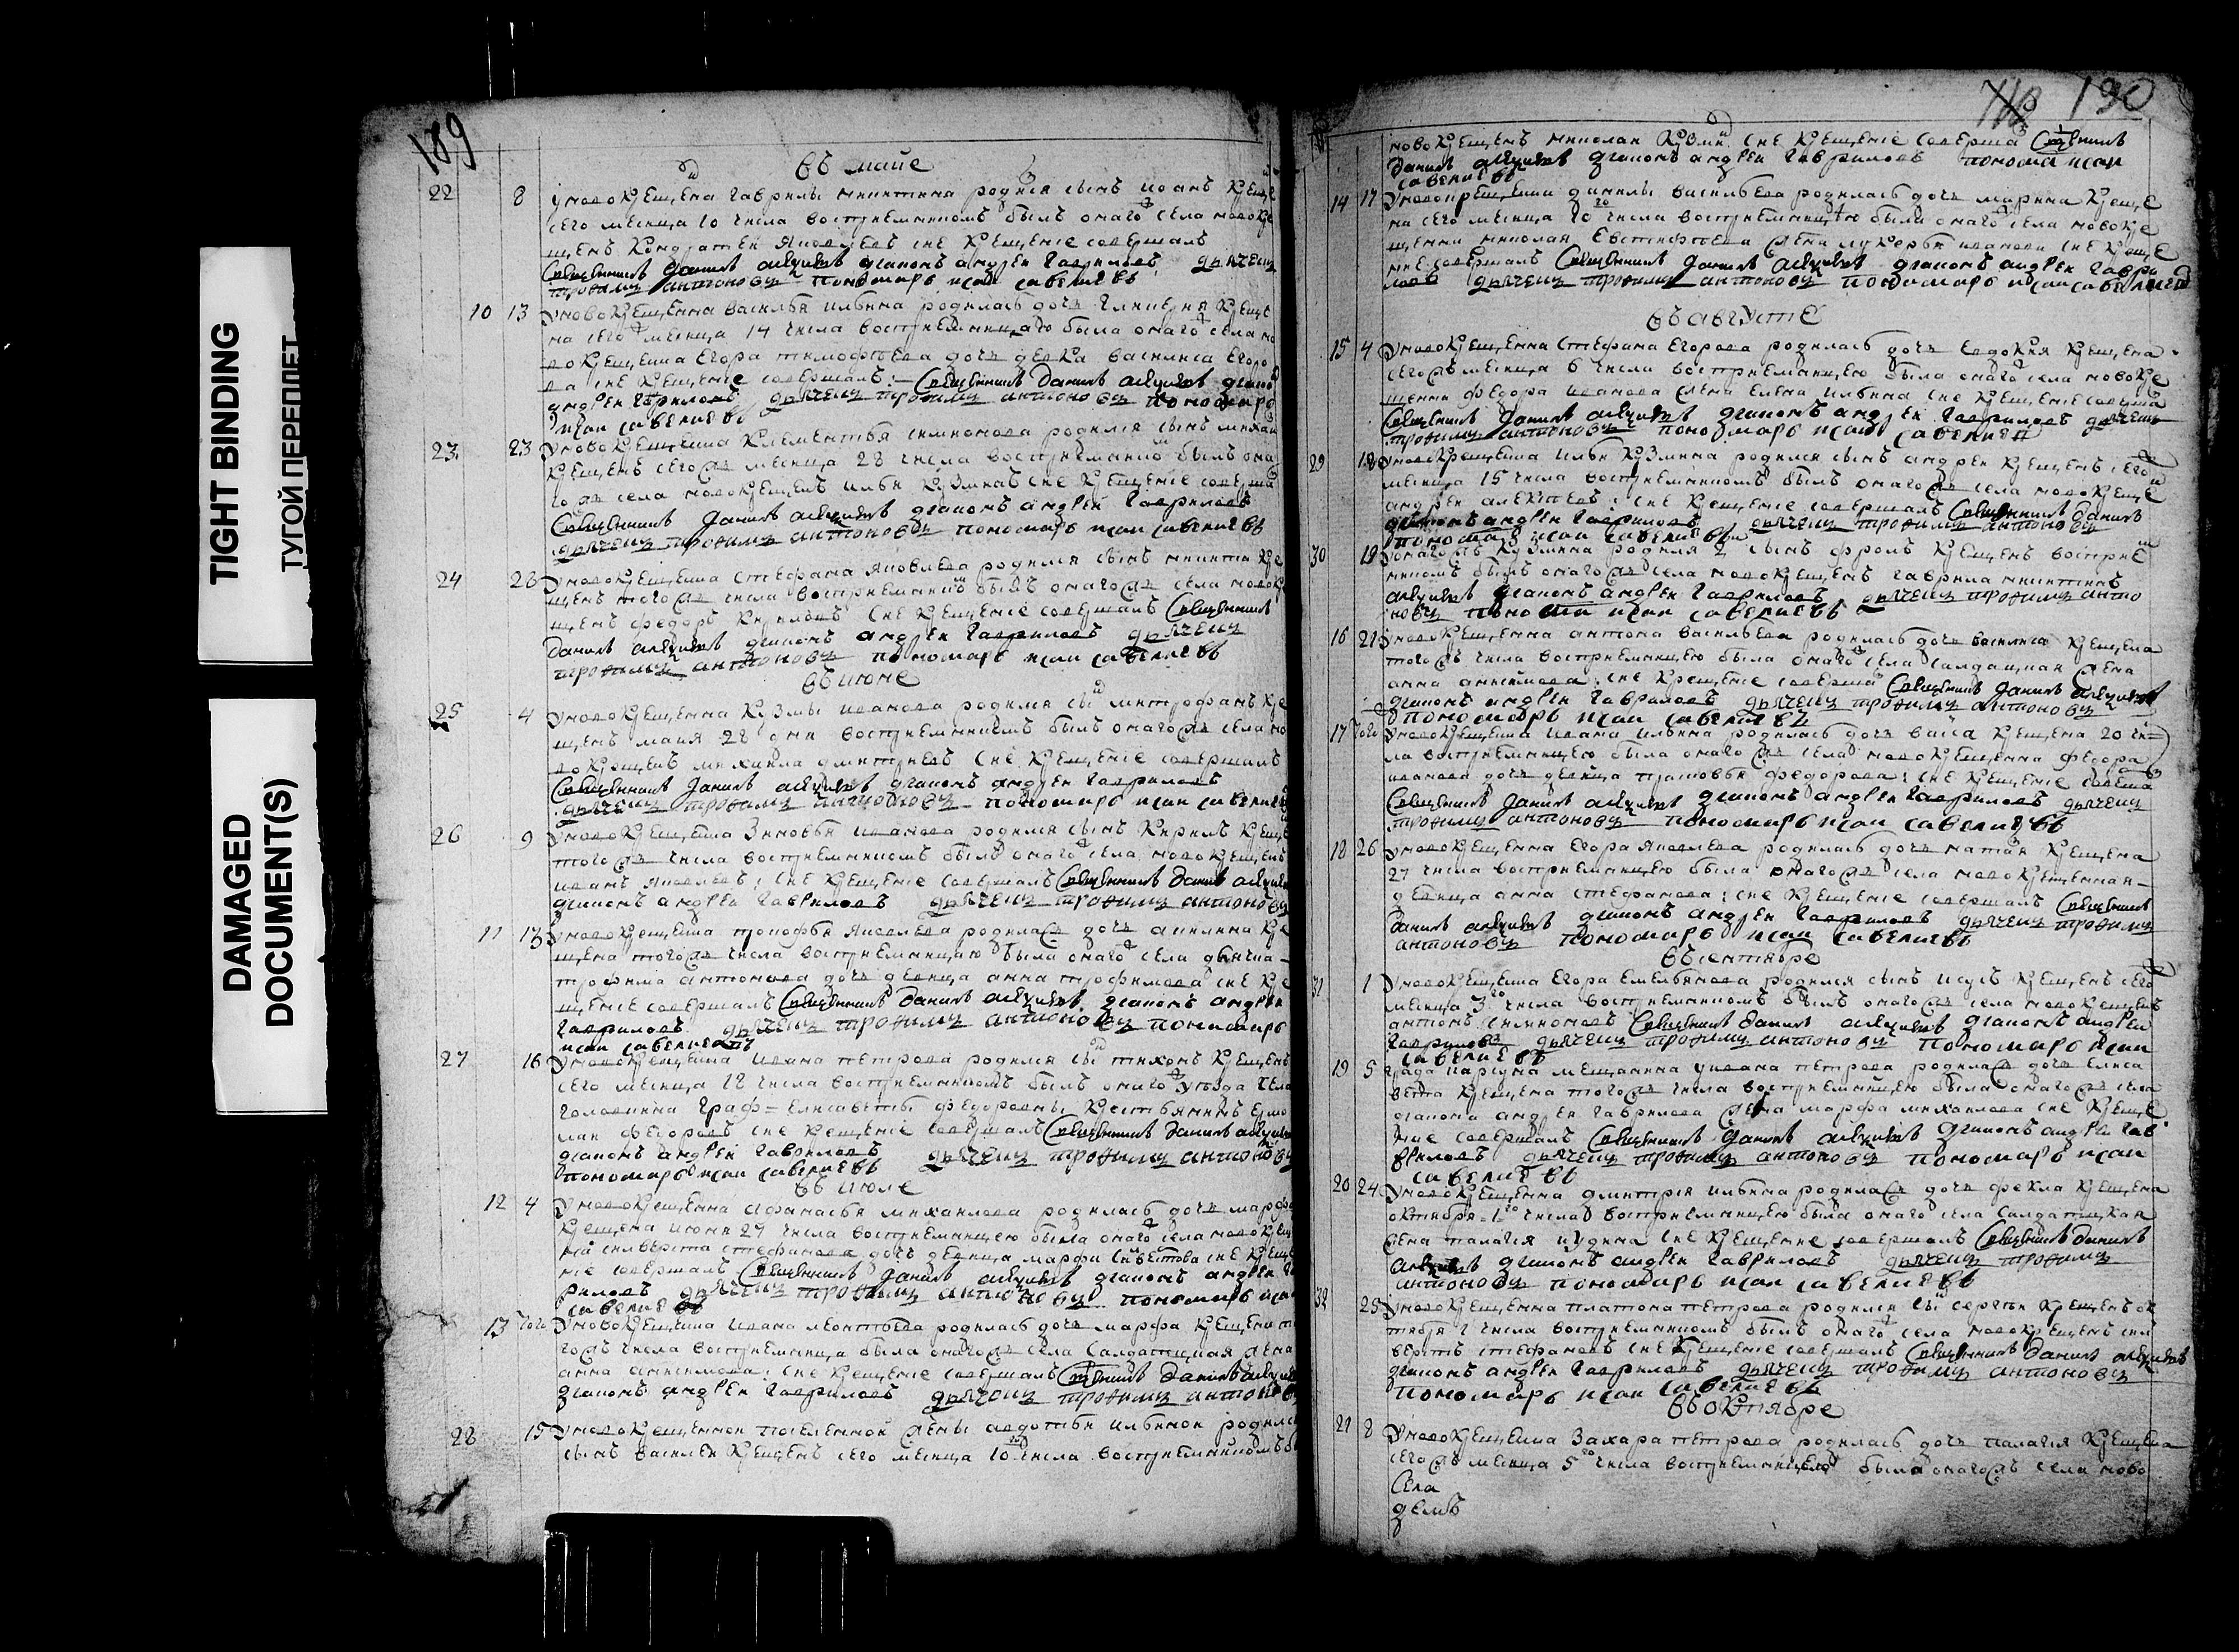 TIGHT BINDING
ТУГОЙ ПЕРЕПЛЕТ
DAMAGED
DOCUMENT(S)
189
въ маие
22 8 у новокрещена гаврилы никитина родился сынъ иоанъ
сего месяца 10 числа восприемникомъ былъ онаго села новокре
щенъ кондратеи яковлевъ сие крещение совершалъ
священникъ данилъ диаконъ андреи гавриловъ дьячекъ
трофимъ антоновъ пономарь исаи савелиевъ
10 13 у новокрещена василья ильина родилась дочь креще
на сего месяца 14 числа восприемницаю была онаго села но
вокрещена егора тимофеева дочь девка василиса егоро
ва сие крещение совершалъ священникъ данилъ диако
андреи гавриловъ дьячекъ трофимъ антоновъ пономарь
исаи савелиевъ
23 23 у новокрещена клементья симионова родился сынъ михаи
крещенъ сего жъ месяца 28 числа восприемникомъ былъ она
го жъ села новокрещенъ илья кузминъ сие крещение соверша
священникъ данилъ диаконъ андреи гавриловъ
дьячекъ трофимъ антоновъ пономарь исаи савелиевъ
24 28 у новокрещена стефана яковлева родился сынъ никита кре
щенъ того жъ числа восприемникомъ былъ онаго жъ села новокре
щенъ федоръ кириловъ сие крещение совершалъ священникъ
данилъ диаконъ андреи гавриловъ дьячекъ
трофимъ антоновъ пономарь исаи савелиевъ
въ июне
25 4 у новокрещена кузмы иванова родился сынъ митрофанъ кре
щенъ маия 28 дня восприемникомъ былъ онаго жъ села но
вокрещенъ михаила дмитриевъ сие крещение совершалъ
священникъ данилъ диаконъ андреи гавриловъ
дьячекъ трофимъ антоновъ пономарь исаи савелиевъ
26 9 у новокрещена зиновья иванова родился сынъ кирилъ креще
того жъ числа восприемникомъ былъ онаго села новокрещенъ
иванъ яковлевъ сие крещение совершалъ священникъ данилъ
диаконъ андреи гавриловъ дьячекъ трофимъ антоновъ
11 13 у новокрещена прокофья яковлева родилась дочь акилина кре
щена того жъ числа восприемницаю была онаго села дьячка
трофима антонова дочь девица анна трофимова сие кре
щение совершалъ священникъ данилъ диаконъ андреи
гавриловъ дьячекъ трофимъ антоновъ пономарь
исаи савелиевъ
27 16 у новокрещена ивана петрова родился сынъ тихонъ крещенъ
сего месяца 18 числа восприемникомъ былъ онаго уезда села
головина граф елисаветы федоровны крестьянинъ ермо
лаи федоровъ сие крещение совершалъ священникъ данилъ
диаконъ андреи гавриловъ дьячекъ трофимъ антоновъ
пономарь исаи савелиевъ
въ июле
12 4 у новокрещена афанасья михаилова родилась дочь марфа
крещена июня 27 числа восприемницею была онаго села новокреще
на силверста стефанова дочь девица марфа сие креще
ние совершалъ священникъ данилъ диаконъ андреи га
вриловъ дьячекъ трофимъ антоновъ пономарь исаи
савелиевъ
13 того у новокрещена ивана леонтьева родилась дочь марфа крещена то
го жъ числа восприемница была онаго жъ села салдатцкая жена
анна анисимова сие крещение совершалъ священникъ данилъ
диаконъ андреи гавриловъ дьячекъ трофимъ антоновъ
28 15 у новокрещенои жены авдотьи ильинои родился
сынъ василеи крещенъ сего месяца 10 числа восприемникомъ
190
новокрещенъ николаи кузми сие крещение соверша священникъ
данилъ диаконъ андреи гавриловъ понома исаи
савелиевъ
14 17 у новокрещена данилы васильева родилась дочь марина креще
на сего месяца 20 числа восприемницею была онаго села новокре
щенна николая евстифеева жена лукерья иванова сие креще
ние совершалъ священникъ данилъ диаконъ андреи гаври
ловъ дьячекъ трофимъ антоновъ пономарь исаи савелиевъ
въ августе
15 4 у новокрещенна стефана егорова родилась дочь евдокия крещена
сего жъ месяца 6 числа восприемницею была онаго села новокре
щенна федора иванова жена елена ильина сие крещение соверша
священникъ данилъ диаконъ андреи гавриловъ дьячекъ
трофимъ антоновъ пономарь исаи савелиевъ
29 18 у новокрещена ильи кузмина родился сынъ андреи крещенъ сего
месяца 15 числа восприемникомъ былъ онаго жъ села новокреще
андреи алексеевъ сие крещение совершалъ священникъ данилъ
диаконъ андреи гавриловъ дьячекъ трофимъ антоновъ
пономарь исаи савелиевъ
30 19 у онаго жъ кузмина родился 2 сынъ фролъ крещенъ восприе
мникомъ былъ онаго жъ села новокрещенъ гаврила никитинъ
диаконъ андреи гавриловъ дьячекъ трофимъ анто
новъ понома исаи савелиевъ
16 21 у новокрещенна антона васильева родилась дочь василиса крещена
того жъ числа восприемницею была онаго села салдацкая жена
анна анисимова сие крещение соверша священникъ данилъ
диаконъ андреи гавриловъ дьячекъ трофимъ антоновъ
пономарь исаи савелиевъ
17 того у новокрещена ивана ильина родилась дочь васса крещена 20 чи
ла восприемницею была онаго жъ села новокрещенна федора
иванова дочь девица прасковья федорова сие крещение соверша
священникъ данилъ диаконъ андреи гавриловъ дьячекъ
трофимъ антоновъ пономарь исаи савелиевъ
18 26 у новокрещенна егора яковлева родилась дочь наталя крещена
27 числа восприемницею была онаго жъ села новокрещенная
девица анна стефанова сие крещение совершалъ священникъ
данилъ диаконъ андреи гавриловъ дьячекъ трофимъ
антоновъ пономарь исаи савелиевъ
въ сентябре
31 1 у новокрещена егора емельянова родился сынъ исусъ крещенъ сего
месяца 3 числа восприемникомъ былъ онаго жъ села новокрещенъ
антонъ симионовъ священникъ данилъ диаконъ андреи
гавриловъ дьячекъ трофимъ антоновъ пономарь исаи
савелиевъ
19 5 града мещанина ивана петрова родилась дочь елиса
вета крещена того жъ числа восприемницею была онаго жъ села
диакона андрея гаврилова жена марфа михаилова сие креще
ние совершалъ священникъ данилъ диаконъ андреи гав
риловъ дьячекъ трофимъ антоновъ пономарь исаи
савелиевъ
20 24 у новокрещенна дмитрия ильина родилась дочь фекла крещена
октября 1 числа восприемницею была онаго села салдатцкая
жена палагия иудина сие крещение совершалъ священникъ данилъ
диаконъ андреи гавриловъ дьячекъ трофимъ
антоновъ пономарь исаи савелиевъ
32 25 у новокрещенна платона петрова родился сынъ сергеи крещенъ ок
тября 2 числа восприемникомъ былъ онаго села новокрещенъ сил
верстъ стефановъ сие крещение совершалъ священникъ данилъ
диаконъ андреи гавриловъ дьячекъ трофимъ антоновъ
пономарь исаи савелиевъ
въ октябре
21 8 у новокрещена захара петрова родилась дочь палагия крещена
сего жъ месяца 5 числа восприемницею была онаго жъ села ново
села